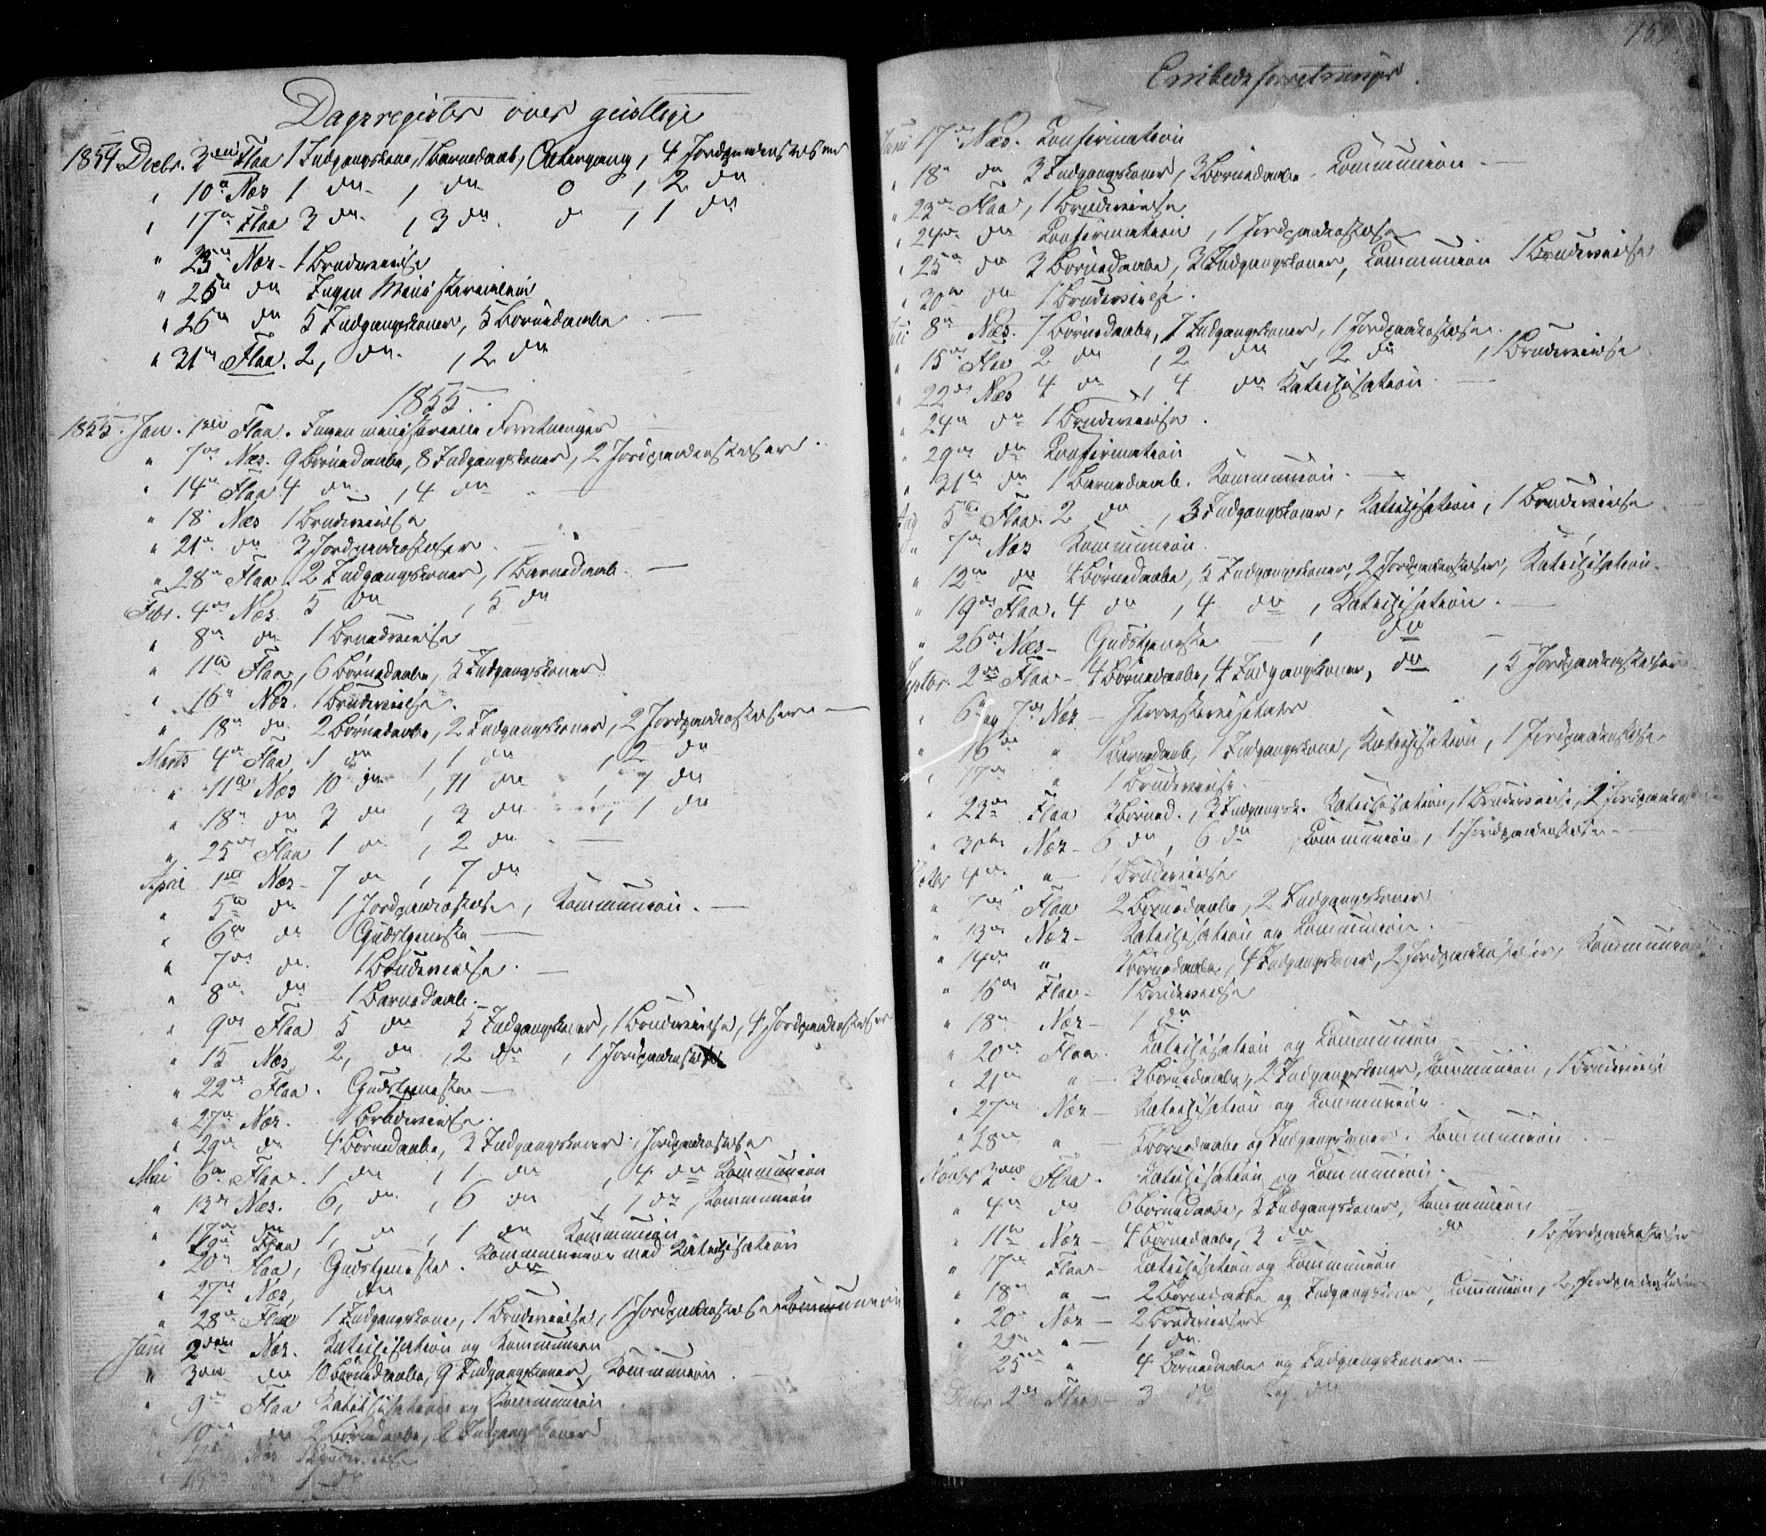 Dagsregister over geistlige
1854 Decbr. 3die Flaa 1 Indgangskone, 1 Barnedaab, Altergang, 4 Jordpaakastelser
" 10de Næs 1 do , 1 do 0 , 2 do
" 17de Flaa 3 do , 3 do 0 , 1 do
" 23de Næs - 1 Brudevielse
" 25de do Ingen Ministerialia
" 26de do 5 Indgangskoner, 5 Børnedaabe
" 31te Flaa. 2, do , 2 do
1855.
1855. Jan. 1ste Flaa. Ingen ministerielle Forretninger
" 7de Næs. 9 Børnedaabe, 8 Indgangskoner, 2 Jordpaakastelser.
" 14de Flaa 4 do , 4 do
" 18 Næs 1 Brudevielse
" 21de do 3 Jordpaakastelser
" 28de Flaa. 2 Indgangskoner, 1 Barnedaab
Febr. 4de Næs 5 do , 5 do
" 8de do 1 Brudevielse
" 11te Flaa, 6 Børnedaabe, 5 Indgangskoner
" 16de Næs. 1 Brudevielse.
" 18de do 2 Børnedaabe, 2 Indgangskoner, 2 Jordpaakastelser
Marts 4de Flaa 1 do , 1 do , 2 do
" 11te Næs 10 do , 11 do , 1 do
" 18de do 3 do , 3 do , 1 do
" 25de Flaa 1 do , 2 do
April 1ste Næs - 7 do , 7 do
" 5te do 1 Jordpaakastelse, Kommunion.
" 6te do Gudstjeneste
" 7de do. 1 Brudevielse.
" 8de do. 1 Barnedaab.
" 9de Flaa 5 do 5 Indgangskoner, 1 Brudevielse, 4 Jordpaakastelser
" 15 Næs 2, do , 2 do , 1 Jordpaakastelse
" 22de Flaa. Gudstjeneste
" 27de Næs. 1 Brudevielse.
" 29de do 4 Børnedaabe, 3 Indgangskoner, Jordpaakastelse
Mai 6te Flaa. 1 do , 1 do , 4 do Kommunion
" 13de Næs. 6, do , 6 do , 1 do, Kommunion
" 17de do 1, do , 1 do Kommunion
" 20de Flaa, Gudstjeneste. Kommunion med Katechisation
" 27de Næs, do do
" 28de Flaa 1 Indgangskone, 1 Brudevielse, 1 Jordpaakastelse Kommunion
Juni 2den Næs. Katechisation og Kommunion
" 3die do 10 Børnedaabe, 9 Indgangskoner, Kommunion
" 9de Flaa Katechisation og Kommunion
" 10de do 2 Børnedaabe, 2 Indgangskoner
Næs 1 Brudevielse
" 15de do 1 do
Embedsforretninger.
Juni 17de Næs. Confirmation
" 18de do 3 Indgangskoner, 3 Børnedaabe. Communion
" 23de Flaa, 1 Brudevielse
" 24de do Confirmation, 1 Jordpaakastelse
" 25de do 3 Børnedaabe, 3 Indgangskoner, Communion 1 Brudevielse
" 30te do 1 Brudevielse.
Juli 8de Næs. 7 Børnedaabe, 7 Indgangskoner, 1 Jordpaakastelse.
" 15de Flaa 2 do , 2 do , 2 do , 1 Brudevielse
" 22de Næs 4 do , 4 do Katechisation.
" 24de do 1 Brudevielse.
" 29de do Confirmation
" 31te do 1 Barnedaab. Kommunion.
Aug 5te Flaa. 2 do , 3 Indgangskoner, Katechisation, 1 Brudevielse
" 7de Næs Kommunion.
" 12te do 4 Børnedaabe, 5 Indgangskoner, 2 Jordpaakastelser, Katechisation.
" 19de Flaa. 4 do , 4 do , Katechisation.
" 26de Næs - Gudstjeneste , do
Septbr. 2den Flaa - 4 Børnedaabe, 4 Indgangskoner, do , 5 Jordpaakastelser
" 6te og 7de Næs - Provstevisitats
" 16de " 1 Barnedaab, 1 Indgangskone, Katechisation, 1 Jordpaakastelse
" 17de " 1 Brudevielse.
" 23de Flaa 3 Børned., 3 Indgangsk. Katechisation, 1 Brudevielse, 2 Jordpaakastelser
" 30te Næs - 6 do , 6 do Communion, 1 Jordpaakastelse
Octbr 4de " 1 Brudevielse
" 7de Flaa 2 Børnedaabe, 2 Indgangskoner
" 13de Næs - Katechisation og Communion.
" 14de " 3 Børnedaabe, 4 Indgangskoner, 2 Jordpaakastelser, Kommunion
" 16de Flaa - 1 Brudevielse
" 18de Næs - 1 do
" 20de Flaa. Katechisation og Communion
" 21de " 3 Børnedaabe, 2 Indgangskoner, Communion, 1 Brudevielse
" 27de Næs - Katechisation og Communion.
" 28de " Børnedaabe og Indgangskoner. Kommunion
Novbr 3die Flaa. Katechisation og Communion.
" 4de do 6 Børnedaabe, 5 Indgangskoner, Kommunion
" 11te Næs - 4 Børnedaabe, 3 do do 2 Jordpaakastelser
" 17de Flaa - Katechisation og Communion
" 18de " - 2 Børnedaabe og Indgangskoner, Communion, 2 Jordpaakastelser
" 20de Næs - 2 Brudevielser
" 22de " - 1 do.
25de " 4 Børnedaabe og Indgangskoner.
2den Flaa - 3 do og do